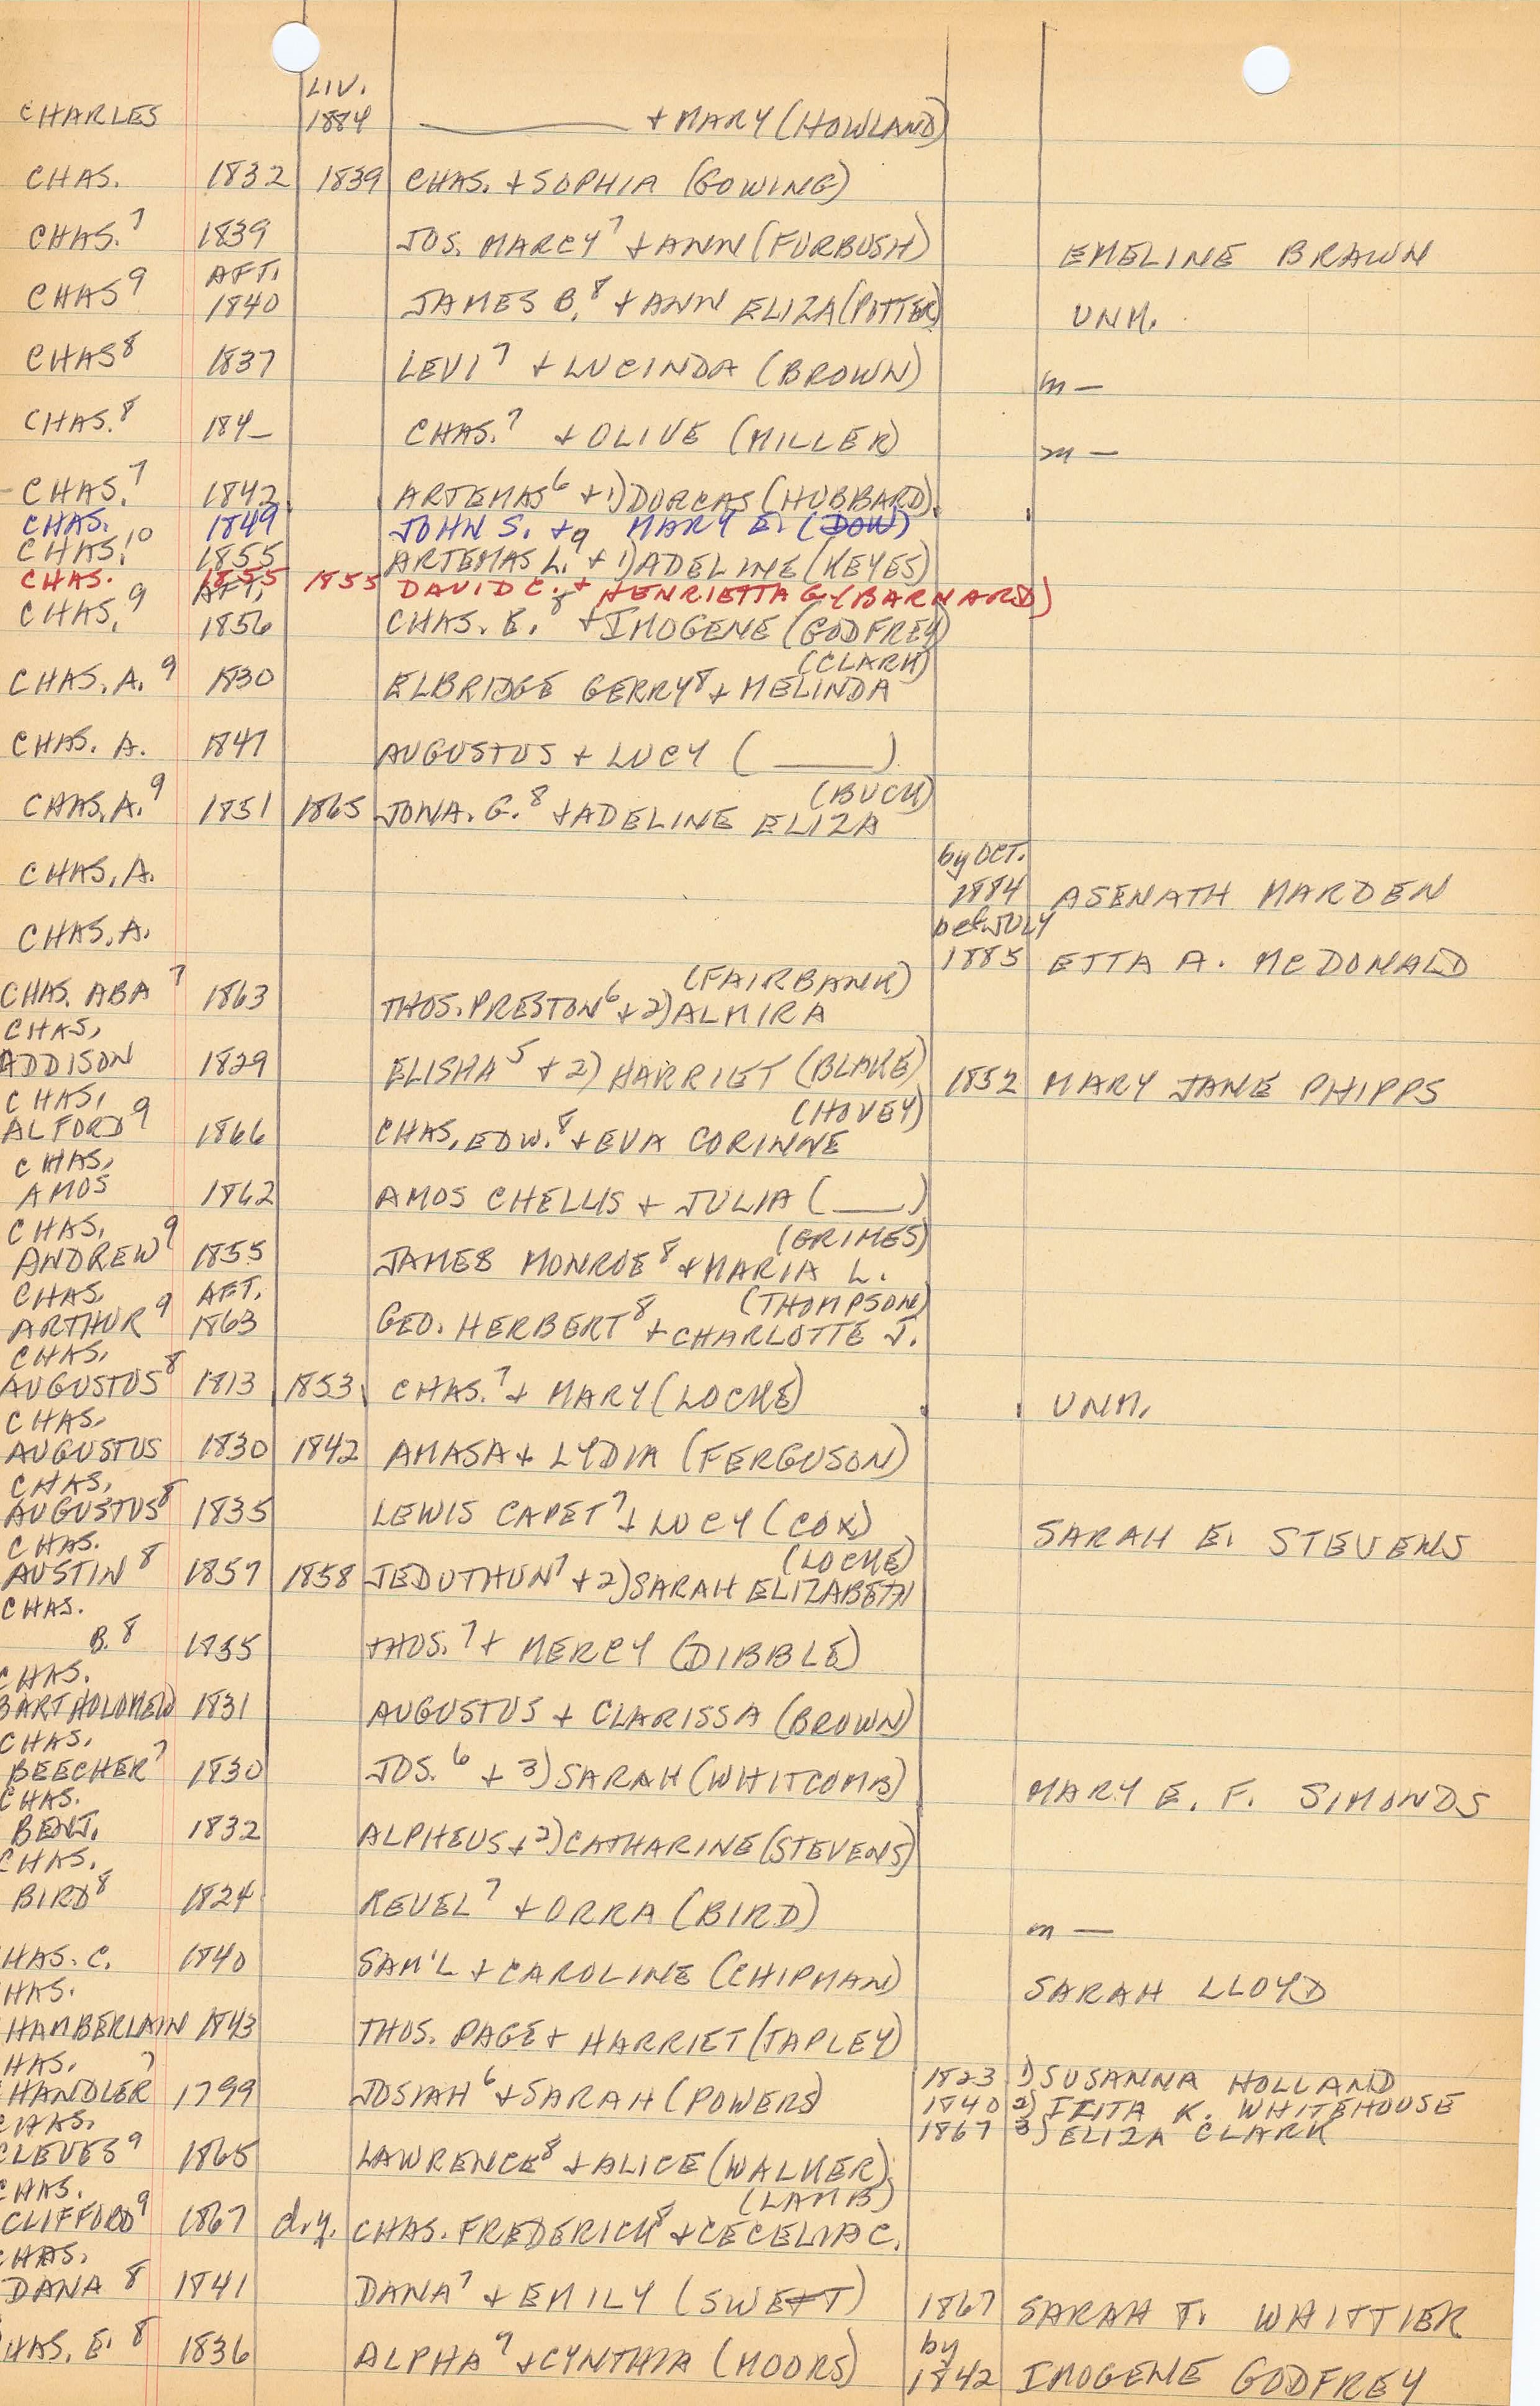 LIV.
CHARLES 1884 ——— + MARY (HOWLAND)
CHAS. 1832 1839 CHAS. + SOPHIA (GOWING)
CHAS.7 1839 JOS. MARCY7 + ANN (FURBUSH) EMELINE BRAWN
AFT.
CHAS9 1840 JAMES B.8 + ANN ELIZA (POTTER) UNM.
CHAS8 1837 LEVI7 + LUCINDA (BROWN) m —
CHAS.8 184_ CHAS.7 + OLIVE (MILLER) m —
CHAS.7 1842 ARTEMAS6 + 1) DORCAS (HUBBARD)
CHAS. 1849 JOHN S. + MARY E. (DOW)
CHAS.10 1855 ARTEMAS L.9 + 1) ADELINE (KEYES)
CHAS. 1855 1855 DAVID C. + HENRIETTA G. (BARNARD)
AFT.
CHAS.9 1856 CHAS. E.8 + IMOGENE (GODFREY)
(CLARK)
CHAS. A.9 1830 ELBRIDGE GERRY8 + MELINDA
CHAS. A. 1847 AUGUSTUS + LUCY ( ——— )
(BUCK)
CHAS. A.9 1851 1865 JONA. G.8 + ADELINE ELIZA
by OCT.
CHAS. A. 1884 ASENATH MARDEN
bef JULY
CHAS. A. 1885 ETTA A. McDONALD
(FAIRBANK)
CHAS. ABA7 1863 THOS. PRESTON6 + 2) ALMIRA
CHAS.
ADDISON 1829 ELISHA5 + 2) HARRIET (BLAKE) 1852 MARY JANE PHIPPS
CHAS. (HOVEY)
ALFORD9 1866 CHAS. EDW.8 + EVA CORINNE
CHAS.
AMOS 1862 AMOS CHELLIS + JULIA ( —— )
CHAS. (GRIMES)
ANDREW9 1855 JAMES MONROE8 + MARIA L.
CHAS. AFT. (THOMPSON)
ARTHUR9 1863 GEO. HERBERT8 + CHARLOTTE J.
CHAS.
AUGUSTUS8 1813 1853 CHAS.7 + MARY (LOCKE) UNM.
CHAS.
AUGUSTUS 1830 1842 AMASA + LYDIA (FERGUSON)
CHAS.
AUGUSTUS8 1835 LEWIS CAPET7 + LUCY (COX) SARAH E. STEVENS
CHAS. (LOCKE)
AUSTIN8 1857 1858 JEDUTHUN7 + 2) SARAH ELIZABETH
CHAS.
B.8 1835 THOS.7 + MERCY (DIBBLE)
CHAS.
BARTHOLOMEW 1831 AUGUSTUS + CLARISSA (BROWN)
CHAS.
BEECHER7 1830 JOS.6 + 3) SARAH (WHITCOMB) MARY E. F. SIMONDS
CHAS.
BENJ. 1832 ALPHEUS + 2) CATHARINE (STEVENS)
CHAS.
BIRD8 1824 REUEL7 + ORRA (BIRD) m —
HAS. C. 1840 SAM'L + CAROLINE (CHIPMAN) SARAH LLOYD
HAS.
HAMBERLAIN 1843 THOS. PAGE + HARRIET (TAPLEY)
HAS. 1823 1) SUSANNA HOLLAND
HANDLER7 1799 JOSIAH6 + SARAH (POWERS) 1840 2) K. WHITEHOUSE
CHAS. 1867 3) ELIZA CLARK
CLEVES9 1865 LAWRENCE8 + ALICE (WALKER)
CHAS. (LAMB)
CLIFFORD9 1867 d.y. CHAS. FREDERICK8 + CECELIA C.
CHAS.
DANA8 1841 DANA7 + EMILY (SWETT) 1867 SARAH T. WHITTIER
by
HAS. E.8 1836 ALPHA7 + CYNTHIA (MOORS) 1842 IMOGENE GODFREY